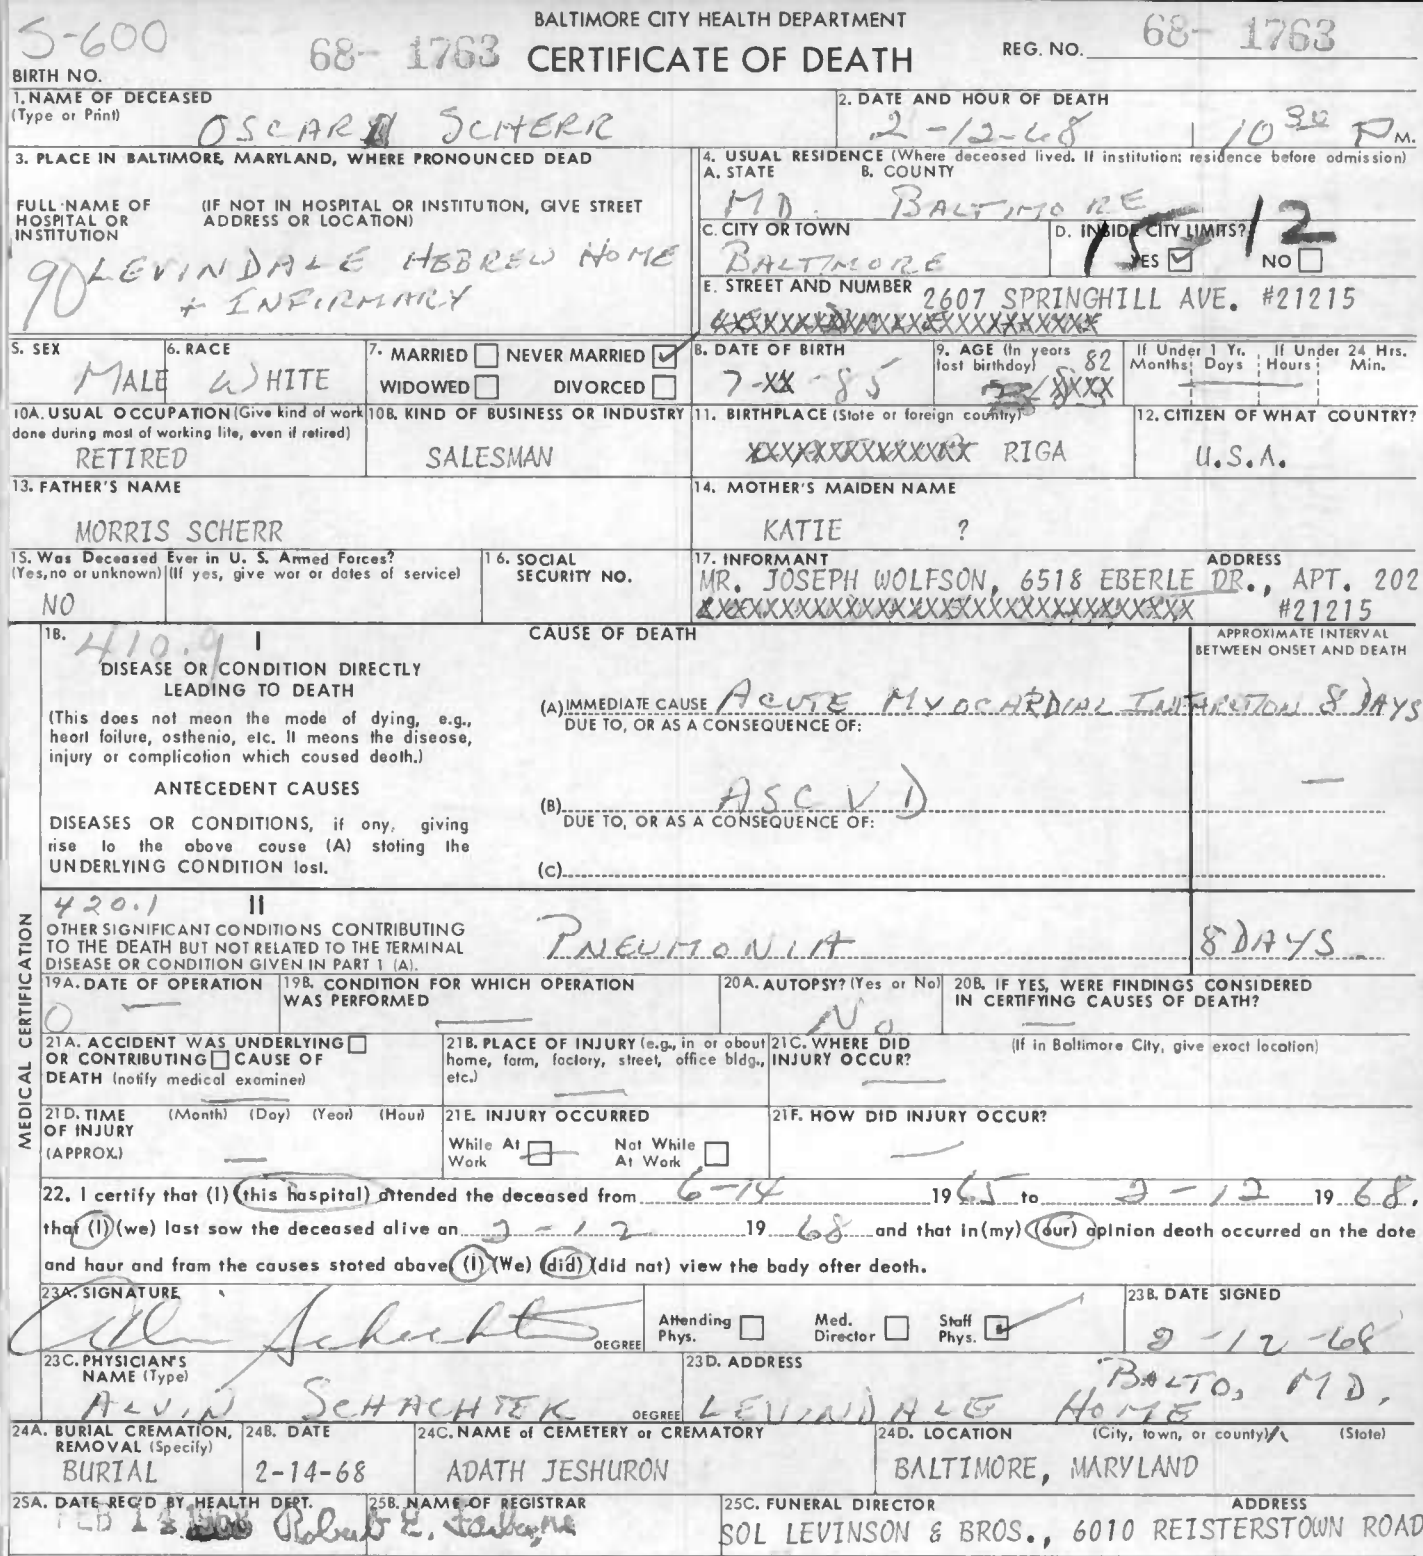 BALTIMORE CITY HEALTH DEPARTMENT
S-600 68- 1763 CERTIFICATE OF DEATH REG. NO. 68- 1763
BIRTH NO.
1. NAME OF DECEASED (Type or Print) OSCAR SCHERR
2. DATE AND HOUR OF DEATH 2-12-68 10 30 P M.
3. PLACE IN BALTIMORE, MARYLAND, WHERE PRONOUNCED DEAD
FULL NAME OF HOSPITAL OR INSTITUTION (IF NOT IN HOSPITAL OR INSTITUTION, GIVE STREET ADDRESS OR LOCATION)
90 LEVINDALE HEBREW HOME
+ INFIRMARY
4. USUAL RESIDENCE (Where deceased lived. If institution: residence before admission)
A. STATE B. COUNTY
MD. BALTIMORE
C. CITY OR TOWN D. INSIDE CITY LIMITS? 15 12
BALTIMORE YES ☑ NO ☐
E. STREET AND NUMBER 2607 SPRINGHILL AVE. #21215
5. SEX MALE
6. RACE WHITE
7. MARRIED ☐ NEVER MARRIED ☑
WIDOWED ☐ DIVORCED ☐
8. DATE OF BIRTH 7-XX-85
9. AGE (In years last birthday) 82
If Under 1 Yr. Months Days If Under 24 Hrs. Hours Min.
10A. USUAL OCCUPATION (Give kind of work done during most of working life, even if retired)
RETIRED
10B. KIND OF BUSINESS OR INDUSTRY
SALESMAN
11. BIRTHPLACE (State or foreign country)
RIGA
12. CITIZEN OF WHAT COUNTRY?
U.S.A.
13. FATHER'S NAME
MORRIS SCHERR
14. MOTHER'S MAIDEN NAME
KATIE ?
15. Was Deceased Ever in U. S. Armed Forces?
(Yes, no or unknown) (If yes, give war or dates of service)
NO
16. SOCIAL SECURITY NO.
17. INFORMANT ADDRESS
MR. JOSEPH WOLFSON, 6518 EBERLE DR., APT. 202
#21215
18. 410.9 I CAUSE OF DEATH APPROXIMATE INTERVAL BETWEEN ONSET AND DEATH
DISEASE OR CONDITION DIRECTLY LEADING TO DEATH
(This does not mean the mode of dying, e.g., heart failure, asthenia, etc. It means the disease, injury or complication which caused death.)
(A) IMMEDIATE CAUSE ACUTE MYOCARDIAL INFARCTION 8 DAYS
DUE TO, OR AS A CONSEQUENCE OF:
ANTECEDENT CAUSES
DISEASES OR CONDITIONS, if any, giving rise to the above cause (A) stating the UNDERLYING CONDITION last.
(B) ASCVD —
DUE TO, OR AS A CONSEQUENCE OF:
(C)
MEDICAL CERTIFICATION
420.1 II
OTHER SIGNIFICANT CONDITIONS CONTRIBUTING TO THE DEATH BUT NOT RELATED TO THE TERMINAL DISEASE OR CONDITION GIVEN IN PART 1 (A).
PNEUMONIA 8 DAYS
19A. DATE OF OPERATION
0 —
19B. CONDITION FOR WHICH OPERATION WAS PERFORMED
—
20A. AUTOPSY? (Yes or No)
No
20B. IF YES, WERE FINDINGS CONSIDERED IN CERTIFYING CAUSES OF DEATH?
—
21A. ACCIDENT WAS UNDERLYING ☐ OR CONTRIBUTING ☐ CAUSE OF DEATH (notify medical examiner)
—
21B. PLACE OF INJURY (e.g., in or about home, farm, factory, street, office bldg., etc.)
—
21C. WHERE DID INJURY OCCUR? (If in Baltimore City, give exact location)
—
21D. TIME OF INJURY (APPROX.) (Month) (Day) (Year) (Hour)
—
21E. INJURY OCCURRED
While At Work ☐ Not While At Work ☐
21F. HOW DID INJURY OCCUR?
—
22. I certify that (I) (this hospital) attended the deceased from 6-14 1965 to 2-12 1968,
that (I) (we) last saw the deceased alive on 2-12 1968 and that in (my) (our) opinion death occurred on the date
and hour and from the causes stated above. (I) (We) (did) (did not) view the body after death.
23A. SIGNATURE
Alvin Schachter DEGREE
Attending Phys. ☐ Med. Director ☐ Staff Phys. ☑
23B. DATE SIGNED
2-12-68
23C. PHYSICIAN'S NAME (Type)
ALVIN SCHACHTER DEGREE
23D. ADDRESS
LEVINDALE HOME BALTO, MD.
24A. BURIAL CREMATION, REMOVAL (Specify)
BURIAL
24B. DATE
2-14-68
24C. NAME of CEMETERY or CREMATORY
ADATH JESHURON
24D. LOCATION (City, town, or county) (State)
BALTIMORE, MARYLAND
25A. DATE REC'D BY HEALTH DEPT.
FEB 1968
25B. NAME OF REGISTRAR
Robert E.
25C. FUNERAL DIRECTOR ADDRESS
SOL LEVINSON & BROS., 6010 REISTERSTOWN ROAD